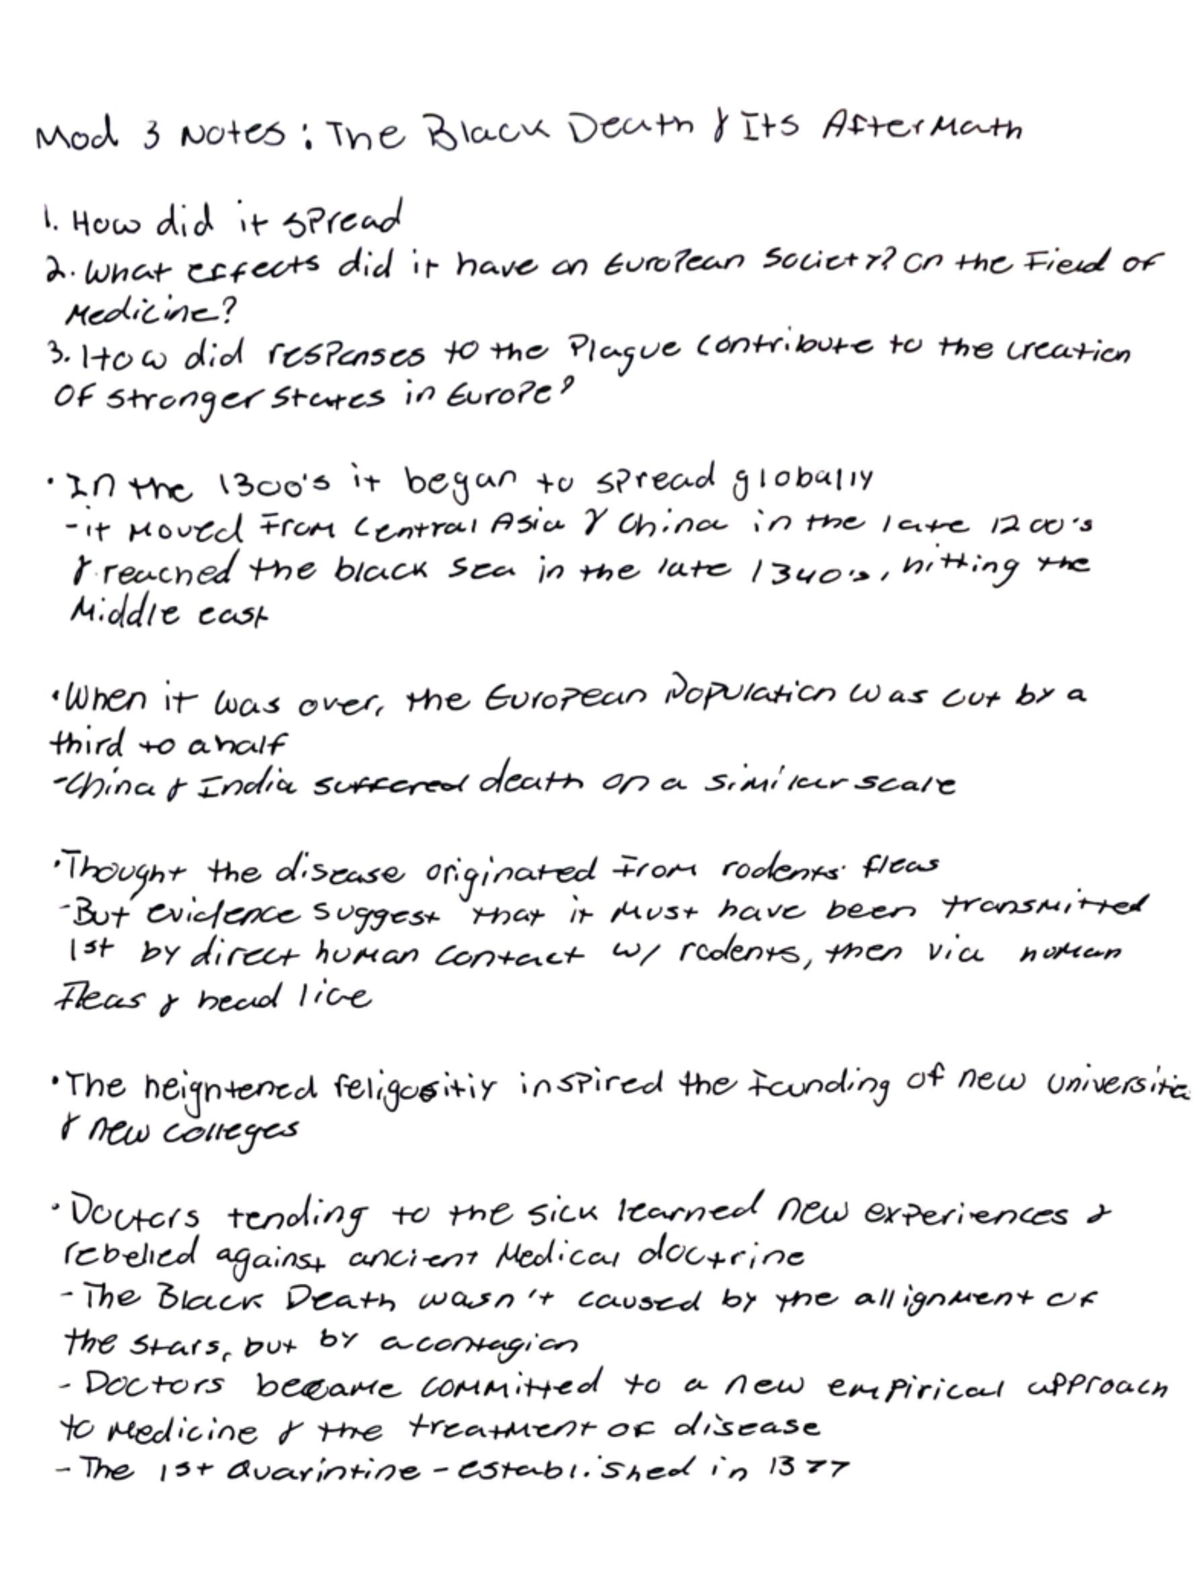 Mod 3 Notes: The Black Death & Its Aftermath
1. How did it spread
2. What effects did it have on European Society? On the Field of
Medicine?
3. How did responses to the Plague contribute to the creation
Of stronger states in Europe?
• In the 1300's it began to spread globally
- it moved from Central Asia & China in the late 1200's
& reached the black sea in the late 1340's, hitting the
Middle east
• When it was over, the European Population was cut by a
third to a half
- China & India suffered death on a similar scale
• Thought the disease originated from rodents' fleas
- But evidence suggest that it must have been transmitted
1st by direct human contact w/ rodents, then via human
fleas & head lice
• The heightened religositiy inspired the founding of new universitie
& new colleges
• Doctors tending to the sick learned new experiences &
rebelled against ancient medical doctrine
- The Black Death wasn't caused by the allignment of
the stars, but by a contagion
- Doctors became committed to a new empirical approach
to medicine & the treatment of disease
- The 1st Quarintine - established in 1377